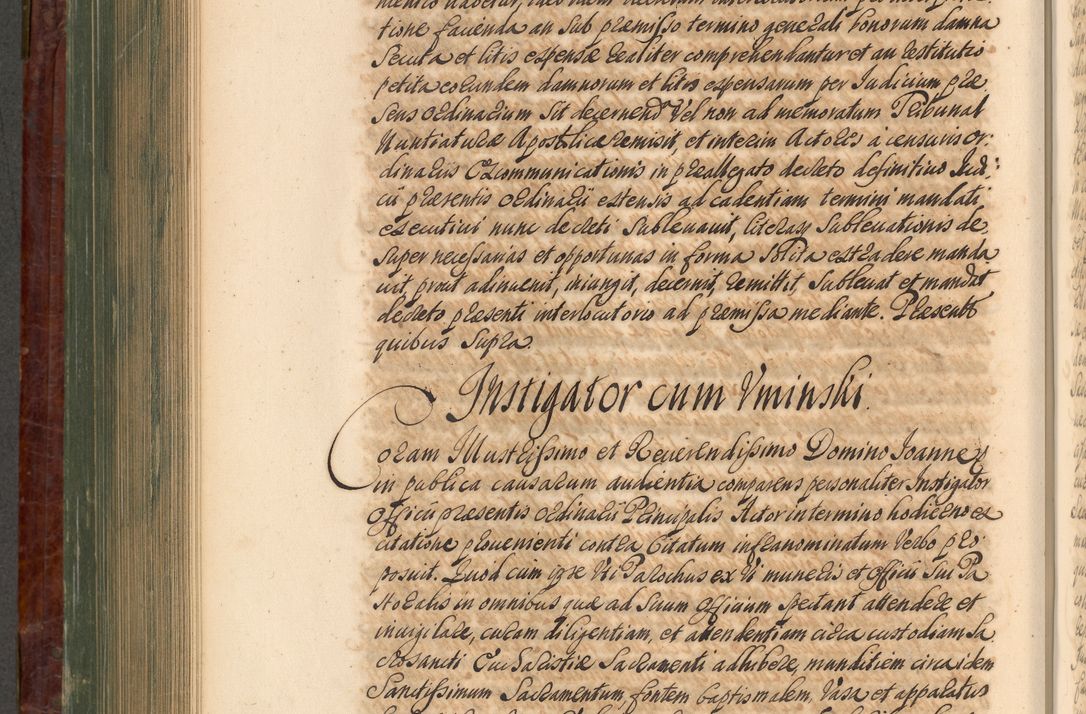 tione facienda an sub præmisso termino generali bonorum damna
secuta et litis expensæ realiter comprehendantur et an restitutio
petita eorundem damnorum et litis expensarum per Judicium præ
sens Ordinarium sit decernend Vel non ad memoratum Tribunal
Nuntiaturæ Apostolicæ remisit, et interim Actores à censuris Or:
dinariis Excommunicationis in præallegato decreto definitivo Judi:
cii præsentis Ordinarii extensis ad cadentiam termini mandati
executivi nunc decreti sublevavit, literasq sublevationis de
super necessarias et opportunas in forma solita extradere manda
vit, prout adinvenit, iniungit, decernit, remittit, sublevat et mandat
decreto præsenti interlocutorio ad præmissa mediante. Præsentib
quibus supra.
Instigator cum Uminski.
Coram Illustrissimo et Reverendissimo Domino Joanne
in publica causarum audientia comparens personaliter Instigator
Officii præsentis Ordinarii Principalis Actor in termino hodierno ex
citatione provenienti contra Citatum infranominatum Verbo pro:
posuit. Quod cum ipse Uti Parochus ex Vi muneris et Officii sui Pa
storalis in omnibus quæ ad suum Officium spectant attendere et
invigilare, curam diligentiam, et attendentiam circa custodiam Sa
crosancti Eucharistiæ Sacramenti adhibere, munditiem circa idem
Sanctissimum Sacramentum, fontem baptismalem, Vasa et apparatus